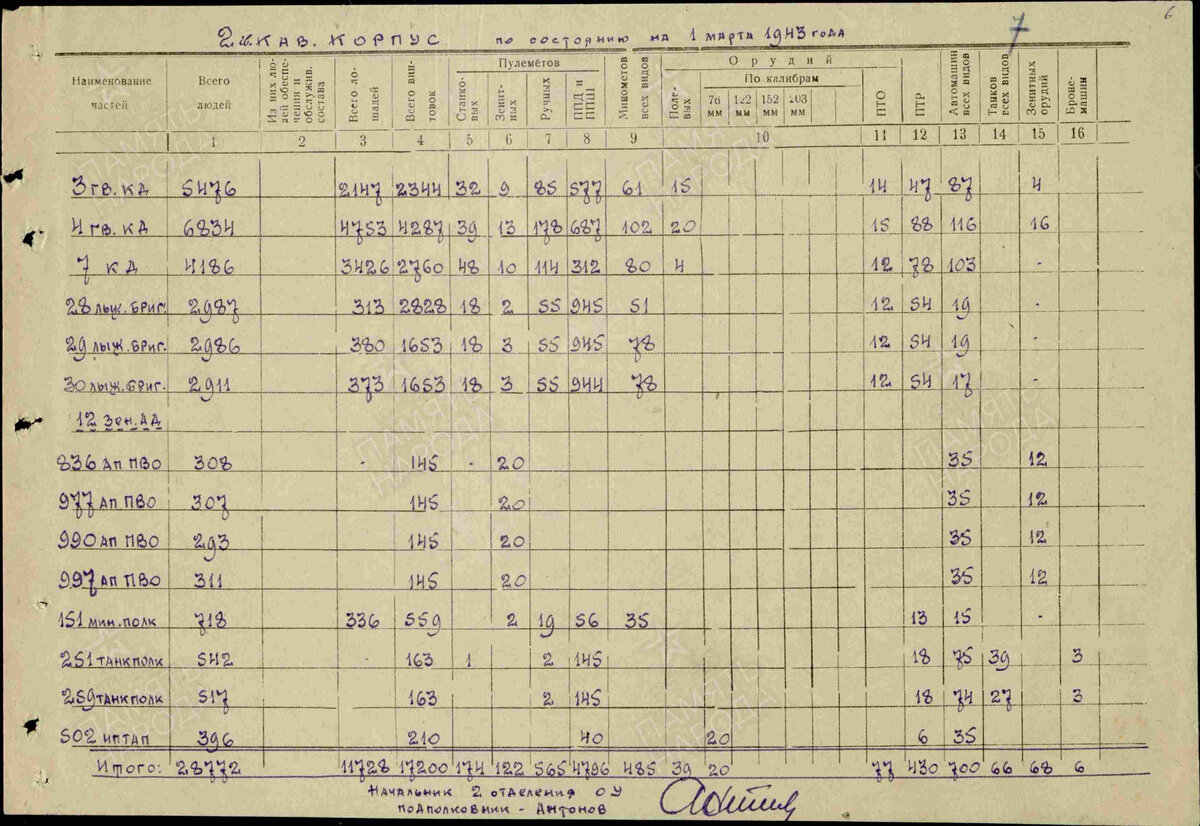 6
7
2 гв. КАВ. КОРПУС по состоянию на 1 марта 1943 года
Наименование частей | Всего людей | Из них людей обеспечения и обслужив. состава | Всего лошадей | Всего винтовок | Пулемётов | Станковых | Зенитных | Ручных | ППД и ППШ | Минометов всех видов | Орудий | Полевых | По калибрам | 76 мм | 122 мм | 152 мм | 203 мм | ПТО | ПТР | Автомашин всех видов | Танков всех видов | Зенитных орудий | Бронемашин
1 2 3 4 5 6 7 8 9 10 11 12 13 14 15 16
3 гв. КД 5476 2147 2344 32 9 85 577 61 15 14 47 87 4
4 гв. КД 6834 4753 4287 39 13 178 687 102 20 15 88 116 16
7 КД 4186 3426 2760 48 10 114 312 80 4 12 78 103 -
28 лыж. бриг. 2987 313 2828 18 2 55 945 51 12 54 19 -
29 лыж. бриг. 2986 380 1653 18 3 55 945 78 12 54 19 -
30 лыж. бриг. 2911 373 1653 18 3 55 944 78 12 54 17 -
12 Зен. АД
836 АП ПВО 308 - 145 - 20 35 12
977 АП ПВО 307 145 20 35 12
990 АП ПВО 293 145 20 35 12
997 АП ПВО 311 145 20 35 12
151 мин. полк 718 336 559 2 19 56 35 13 15 -
251 танкполк 542 - 163 1 2 145 18 75 39 3
259 танкполк 517 163 2 145 18 74 27 3
502 ИПТАП 396 210 40 20 6 35
Итого: 28772 11728 17200 174 122 565 4796 485 39 20 77 430 700 66 68 6
Начальник 2 отделения ОУ
подполковник - Антонов
ПАМЯТЬ НАРОДА